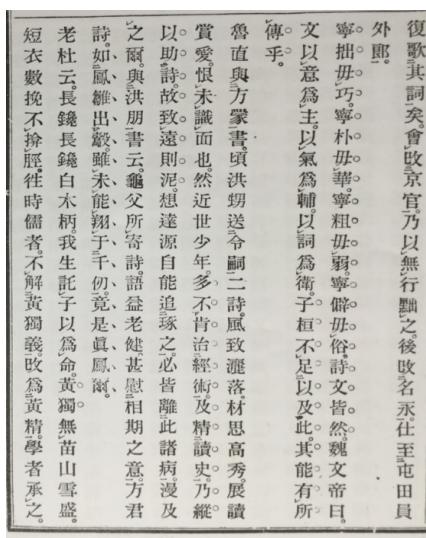 復歌其詞矣。會改京官。乃以無行黜之。後改名永。仕至屯田員
外郎。
寧拙毋巧。寧朴毋華。寧粗毋弱。寧僻毋俗。詩文皆然。魏文帝曰。
文以意爲主。以氣爲輔。以詞爲衛。子桓不足以及此。其能有所
傳乎。
魯直與方蒙書。頃洪甥送令嗣二詩。風致灑落。材思高秀。展讀
賞愛。恨未識面也。然近世少年。多不肯治經術。及精讀史。乃縱
以助詩。故致遠則泥。想達源自能追琢之。必皆離此諸病。漫及
之爾。與洪朋書云。龜父所寄詩。語益老健。甚慰相期之意。方君
詩。如鳳雛出㲉。雖未能翔于千仞。竟是眞鳳爾。
老杜云。長鑱長鑱白木柄。我生託子以爲命。黃獨無苗山雪盛。
短衣數挽不揜脛。往時儒者。不解黃獨義。改爲黃精。學者承之。